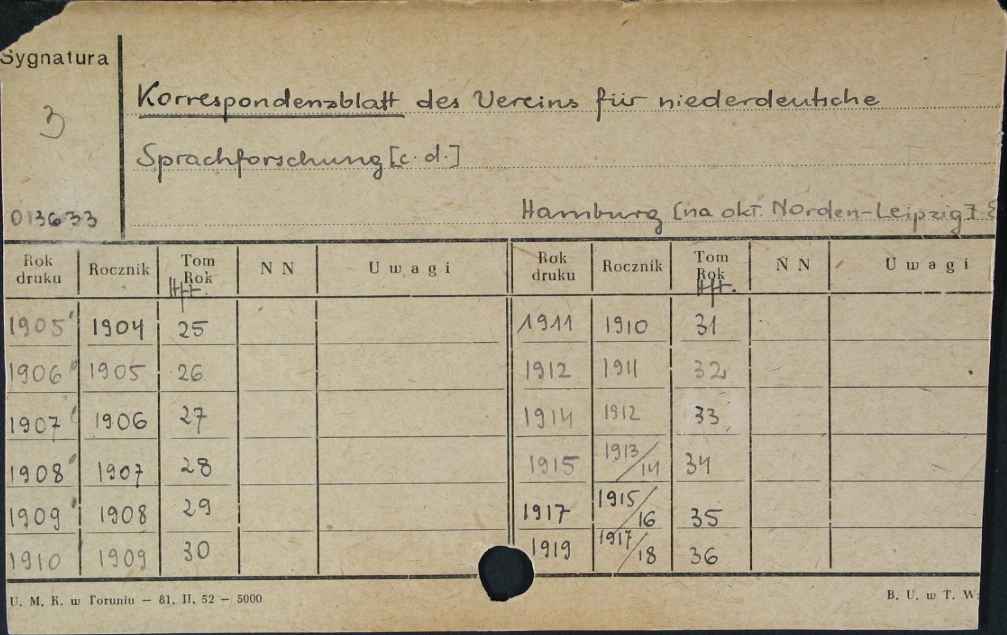 Sygnatura
3
013633
Korrespondenzblatt des Vereins für niederdeutsche
Sprachforschung [c. d.]
Hamburg [na okł. Norden-Leipzig]
Rok druku Rocznik Tom Rok Hft. N N Uwagi Rok druku Rocznik Tom Rok Hft. N N Uwagi
1905 1904 25 1911 1910 31
1906 1905 26 1912 1911 32
1907 1906 27 1914 1912 33
1908 1907 28 1915 1913/14 34
1909 1908 29 1917 1915/16 35
1910 1909 30 1919 1917/18 36
U. M. K. w Toruniu — 81. II. 52 — 5000 B. U. w T. W